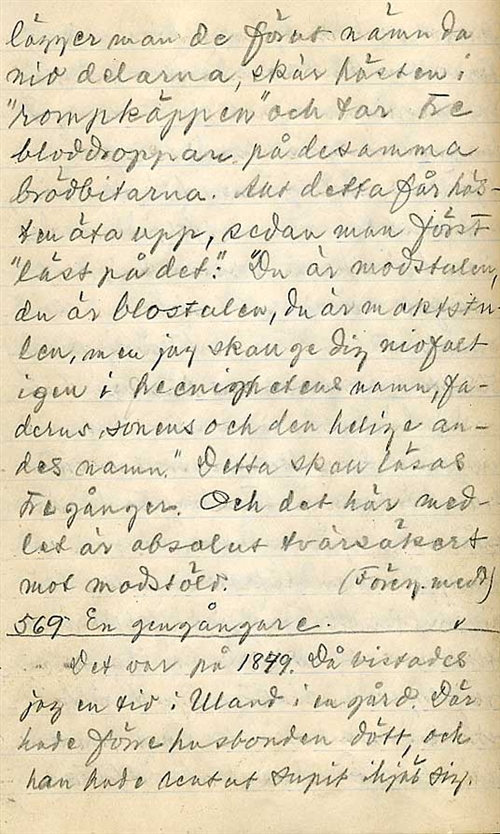 lägger man de förut nämnda
nio delarna, skär hästen i
"rompkäppen" och tar tre
bloddroppar på desamma
brödbitarna. Allt detta får häs-
ten äta upp, sedan man först
"läst på det": "Du är modstulen,
du är blostulen, du är maktstu-
len, men jag skall ge dig niofalt
igen i treenighetens namn, fa-
derns, sonens och den helige an-
des namn." Detta skall läsas
tre gånger. Och det här med-
let är absolut tvärsäkert
mot modstöld. (Föreg. medd)
569 En gengångare.
Det var på 1879. Då vistades
jag en tid i Uland i en gård. Där
hade förre husbonden dött, och
han hade rentut supit ihjäl sig.